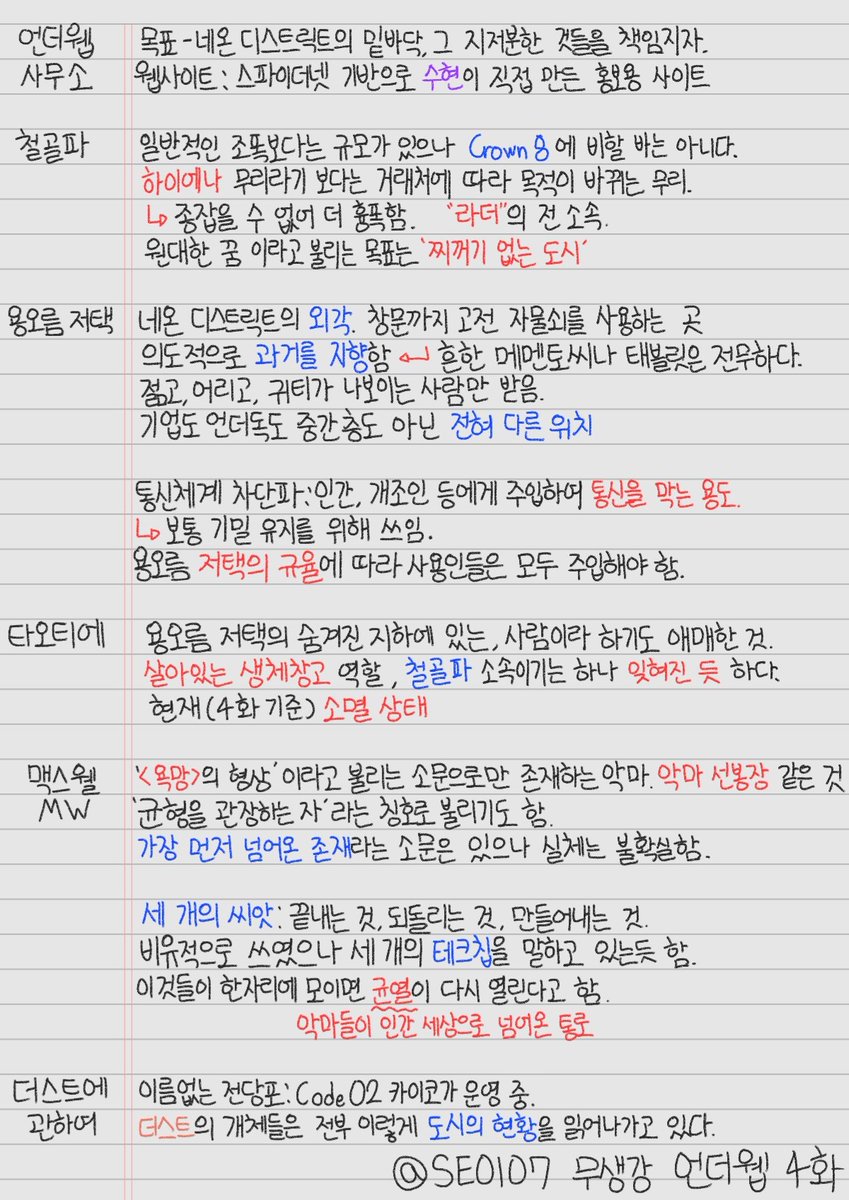 언더웹 목표 - 네온 디스트릭트의 밑바닥, 그 지저분한 것들을 책임지자.
사무소 웹사이트 : 스파이더넷 기반으로 수현이 직접 만든 홍보용 사이트
철골파 일반적인 조폭보다는 규모가 있으나 Crown 8에 비할 바는 아니다.
하이에나 무리라기 보다는 거래처에 따라 목적이 바뀌는 무리.
↳ 종잡을 수 없어 더 흉폭함. "라더"의 전 소속.
원대한 꿈 이라고 불리는 목표는 '찌꺼기 없는 도시'
용오름 저택 네온 디스트릭트의 외각. 창문까지 고전 자물쇠를 사용하는 곳
의도적으로 과거를 지향함 ↩ 흔한 메멘토씨나 태블릿은 전무하다.
젊고, 어리고, 귀티가 나보이는 사람만 받음.
기업도 언더독도 중간층도 아닌 전혀 다른 위치
통신체계 차단파 : 인간, 개조인 등에게 주입하여 통신을 막는 용도.
↳ 보통 기밀 유지를 위해 쓰임.
용오름 저택의 규율에 따라 사용인들은 모두 주입해야 함.
타오티에 용오름 저택의 숨겨진 지하에 있는, 사람이라 하기도 애매한 것.
살아있는 생체창고 역할, 철골파 소속이기는 하나 잊혀진 듯 하다.
현재 (4화 기준) 소멸 상태
맥스웰 '<욕망>의 형상' 이라고 불리는 소문으로만 존재하는 악마. 악마 선봉장 같은 것
MW '균형을 관장하는 자' 라는 칭호로 불리기도 함.
가장 먼저 넘어온 존재라는 소문은 있으나 실체는 불확실함.
세 개의 씨앗 : 끝내는 것, 되돌리는 것, 만들어내는 것.
비유적으로 쓰였으나 세 개의 테크칩을 말하고 있는듯 함.
이것들이 한자리에 모이면 균열이 다시 열린다고 함.
악마들이 인간 세상으로 넘어온 통로
더스트에 이름없는 전당포 : Code 02 카이코가 운영 중.
관하여 더스트의 개체들은 전부 이렇게 도시의 현황을 읽어나가고 있다.
@SE0107 무생강 언더웹 4화